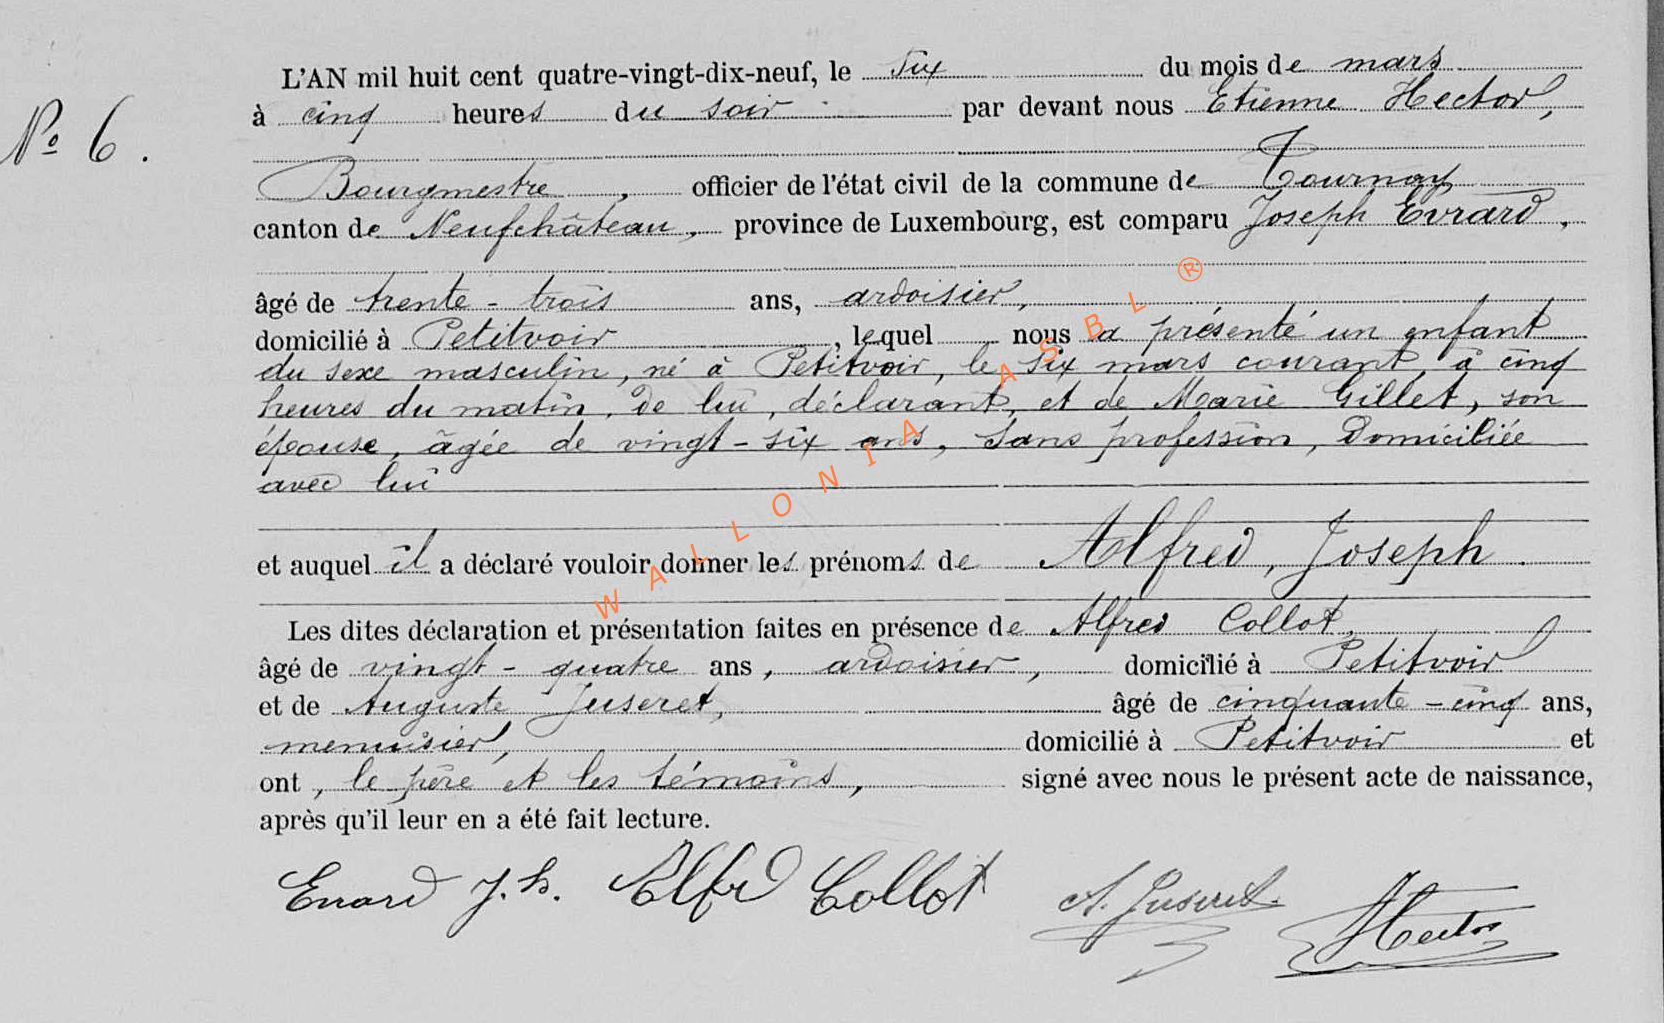 L'AN mil huit cent quatre-vingt-dix-neuf, le six du mois de mars
à cinq heures du soir par devant nous Etienne Hector,
Nº 6.
Bourgmestre, officier de l'état civil de la commune de Tournay
canton de Neufchâteau, province de Luxembourg, est comparu Joseph Evrard,
âgé de trente-trois ans, ardoisier,
domicilié à Petitvoir, lequel nous a présenté un enfant
du sexe masculin, né à Petitvoir, le six mars courant, à cinq
heures du matin, de lui, déclarant, et de Marie Gillet, son
épouse, âgée de vingt-six ans, sans profession, domiciliée
avec lui
et auquel il a déclaré vouloir donner les prénoms de Alfred, Joseph.
Les dites déclaration et présentation faites en présence de Alfred Collot,
âgé de vingt-quatre ans, ardoisier, domicilié à Petitvoir
et de Auguste Juseret, âgé de cinquante-cinq ans,
menuisier, domicilié à Petitvoir et
ont, le père et les témoins, signé avec nous le présent acte de naissance,
après qu'il leur en a été fait lecture.
Evrard J. h. Alfred Collot A. Juseret. Hector
WALLONIA ASBL ®